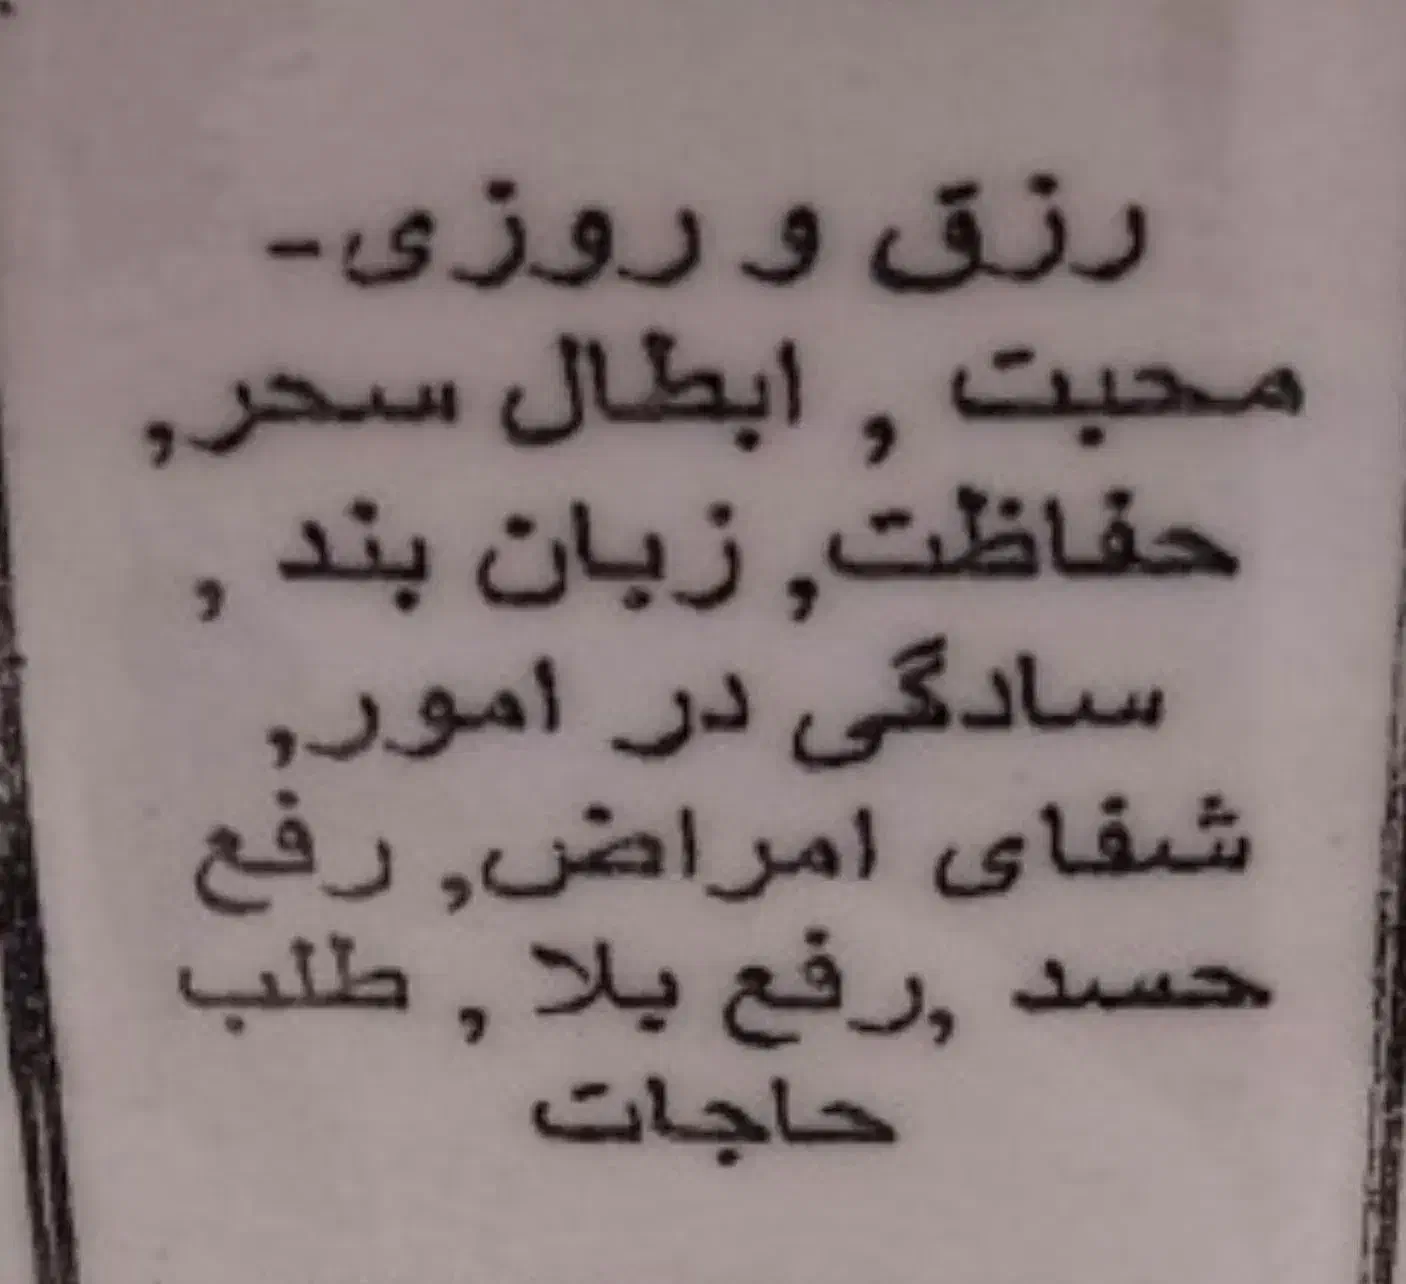 رزق و روزی-
محبت , ابطال سحر,
حفاظت, زبان بند ,
سادگی در امور,
شفای امراض, رفع
حسد ,رفع بلا , طلب
حاجات